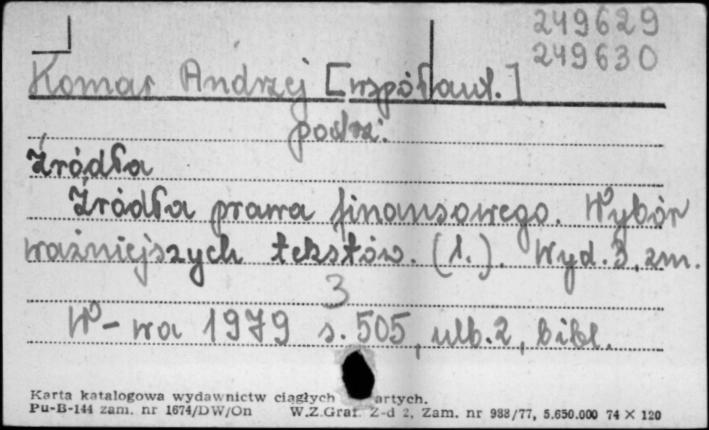 249629
249630
Komar Andrzej [współaut.]
patrz:
Źródła
Źródła prawa finansowego. Wybór
ważniejszych tekstów. (1.). Wyd. 3, zm.
3
W-wa 1979 s. 505, ulb. 2, bibl.
Karta katalogowa wydawnictw ciągłych artych.
Pu-B-144 zam. nr 1674/DW/On W.Z.Graf. Z-d 2, Zam. nr 988/77, 5.650.000 74 × 120